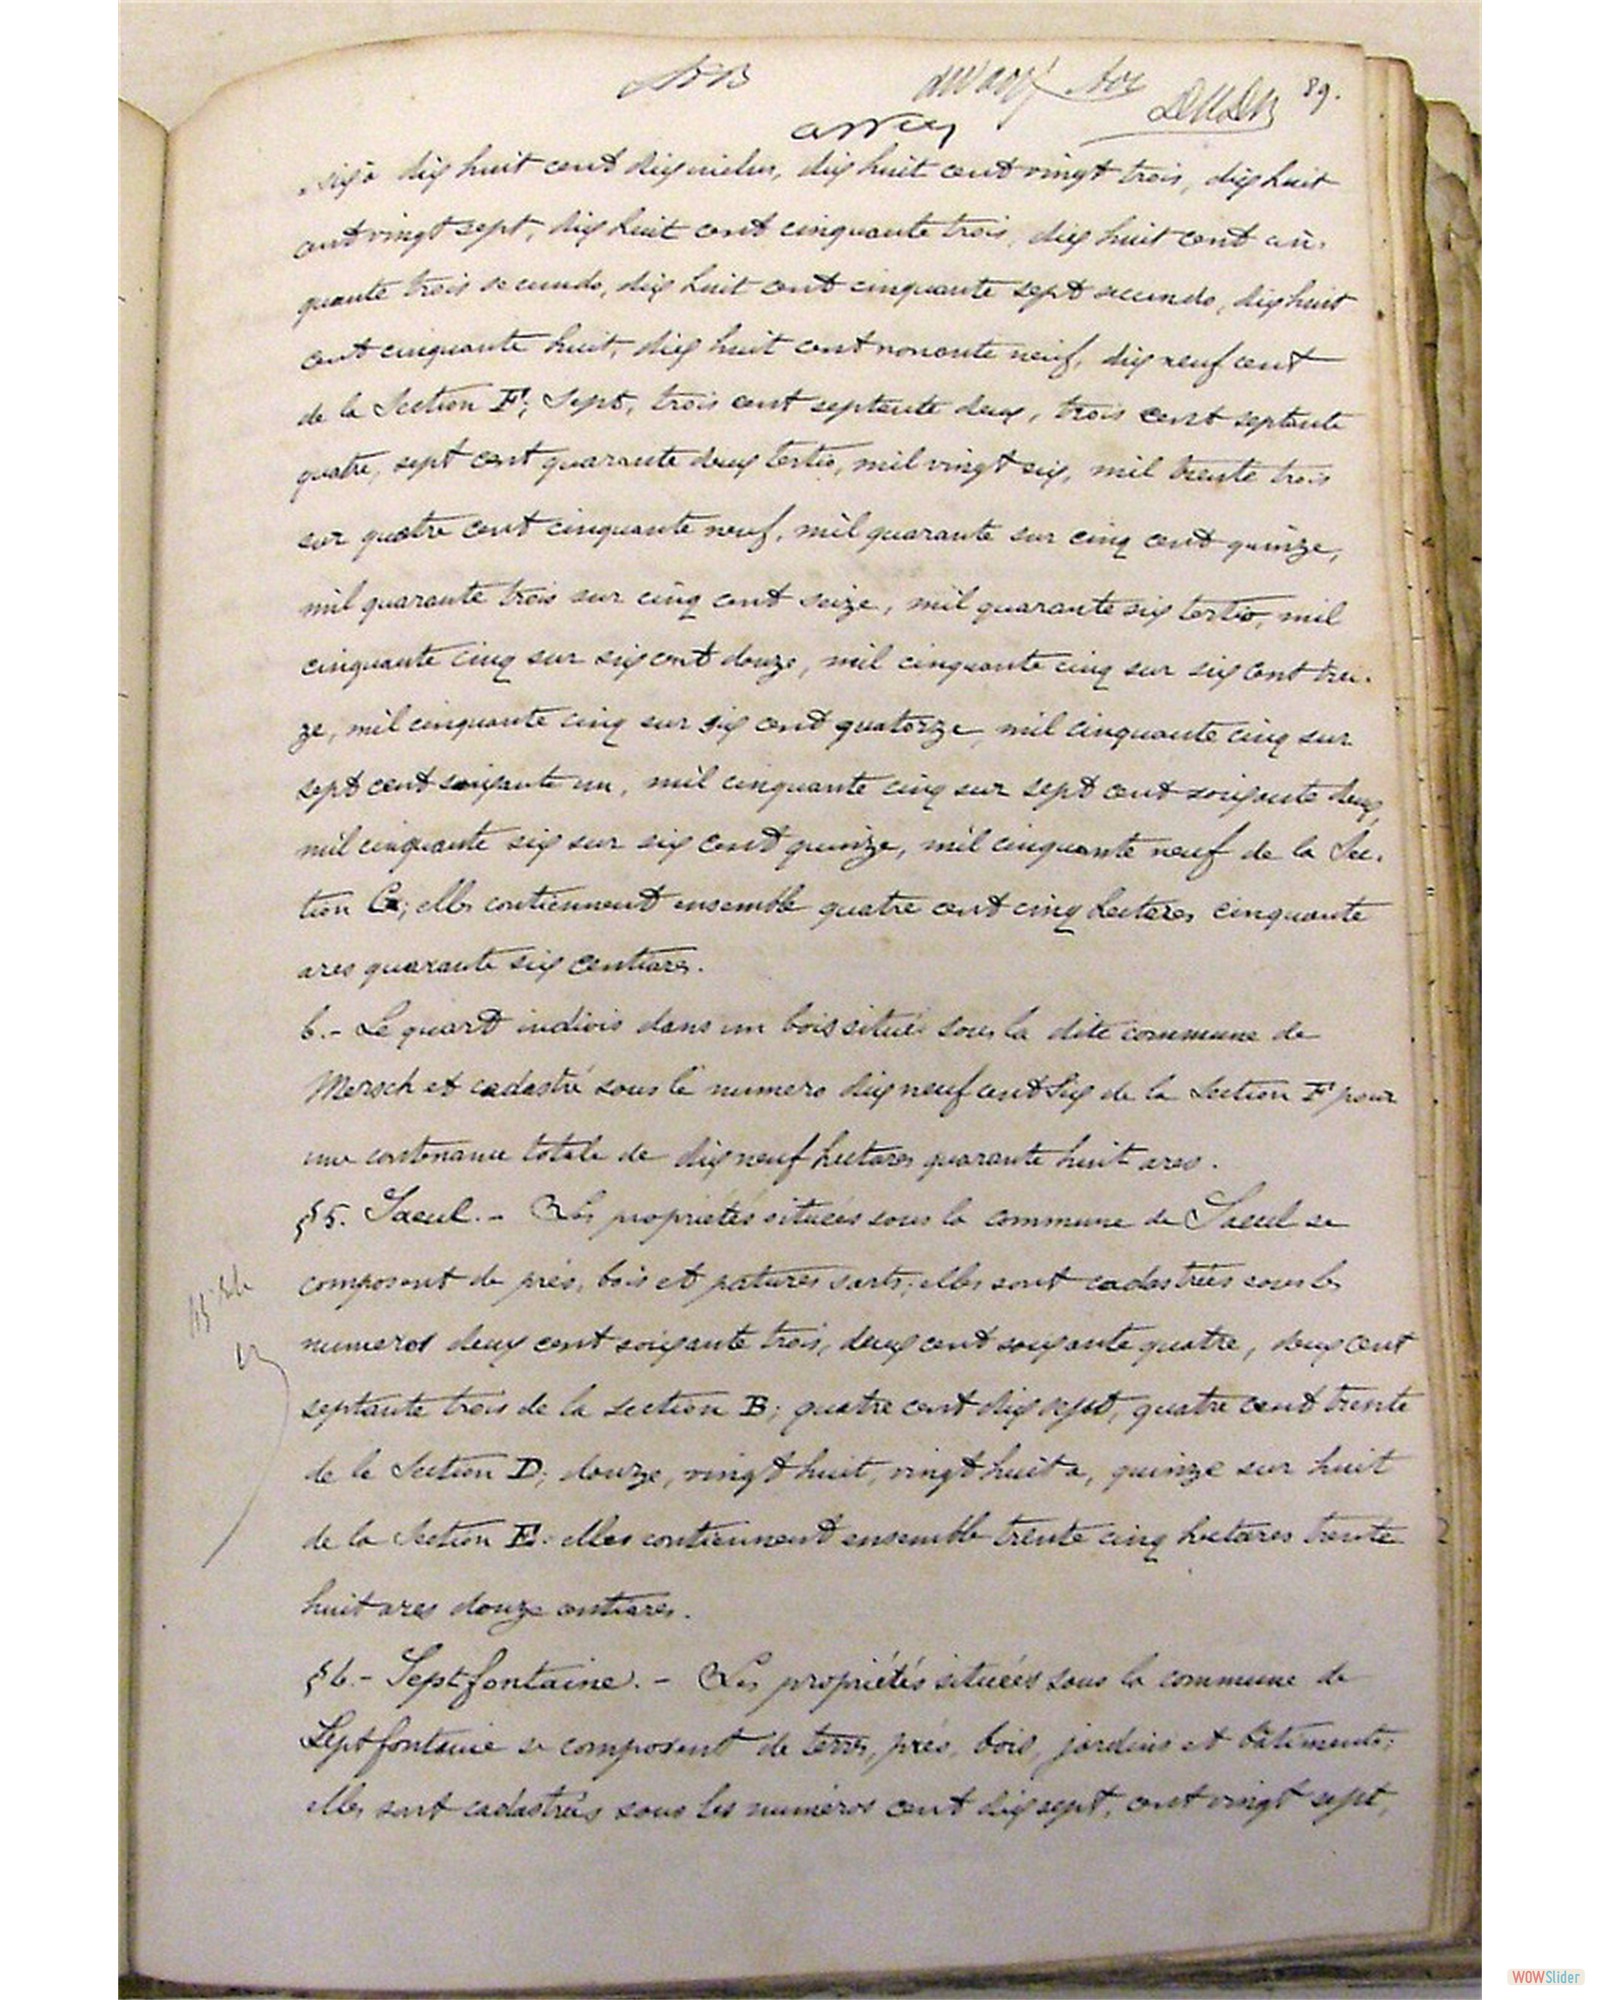 89.
dix huit cent dix neuf, dix huit cent vingt trois, dix huit
cent vingt sept, dix huit cent cinquante trois, dix huit cent cin-
quante trois secundo, dix huit cent cinquante sept secundo, dix huit
cent cinquante huit, dix huit cent nonante neuf, dix neuf cent
de la Section F; Sept, trois cent septante deux, trois cent septante
quatre, sept cent quarante deux tertio, mil vingt six, mil trente trois
sur quatre cent cinquante neuf, mil quarante sur cinq cent quinze,
mil quarante trois sur cinq cent seize, mil quarante six tertio, mil
cinquante cinq sur six cent douze, mil cinquante cinq sur six cent trei-
ze, mil cinquante cinq sur six cent quatorze, mil cinquante cinq sur
sept cent soixante un, mil cinquante cinq sur sept cent soixante deux,
mil cinquante six sur six cent quinze, mil cinquante neuf de la Sec-
tion G; elles contiennent ensemble quatre cent cinq hectares cinquante
ares quarante six centiares.
b.- Le quart indivis dans un bois situé sous la dite commune de
Mersch et cadastré sous le numero dix neuf cent six de la Section F pour
une contenance totale de dix neuf hectares quarante huit ares.
§5. Saeul. - Les propriétés situées sous la commune de Saeul se
composent de prés, bois et patures sarts; elles sont cadastrées sous les
numeros deux cent soixante trois, deux cent soixante quatre, deux cent
septante trois de la section B; quatre cent dix sept, quatre cent trente
de la Section D; douze, vingt huit, vingt huit a, quinze sur huit
de la Section E. elles contiennent ensemble trente cinq hectares trente
huit ares douze centiares.
§6.- Septfontaine. - Les propriétés situées sous la commune de
Septfontaine se composent de terres, prés, bois, jardins et bâtiments;
elles sont cadastrées sous les numéros cent dix sept, cent vingt sept,
WOWSlider